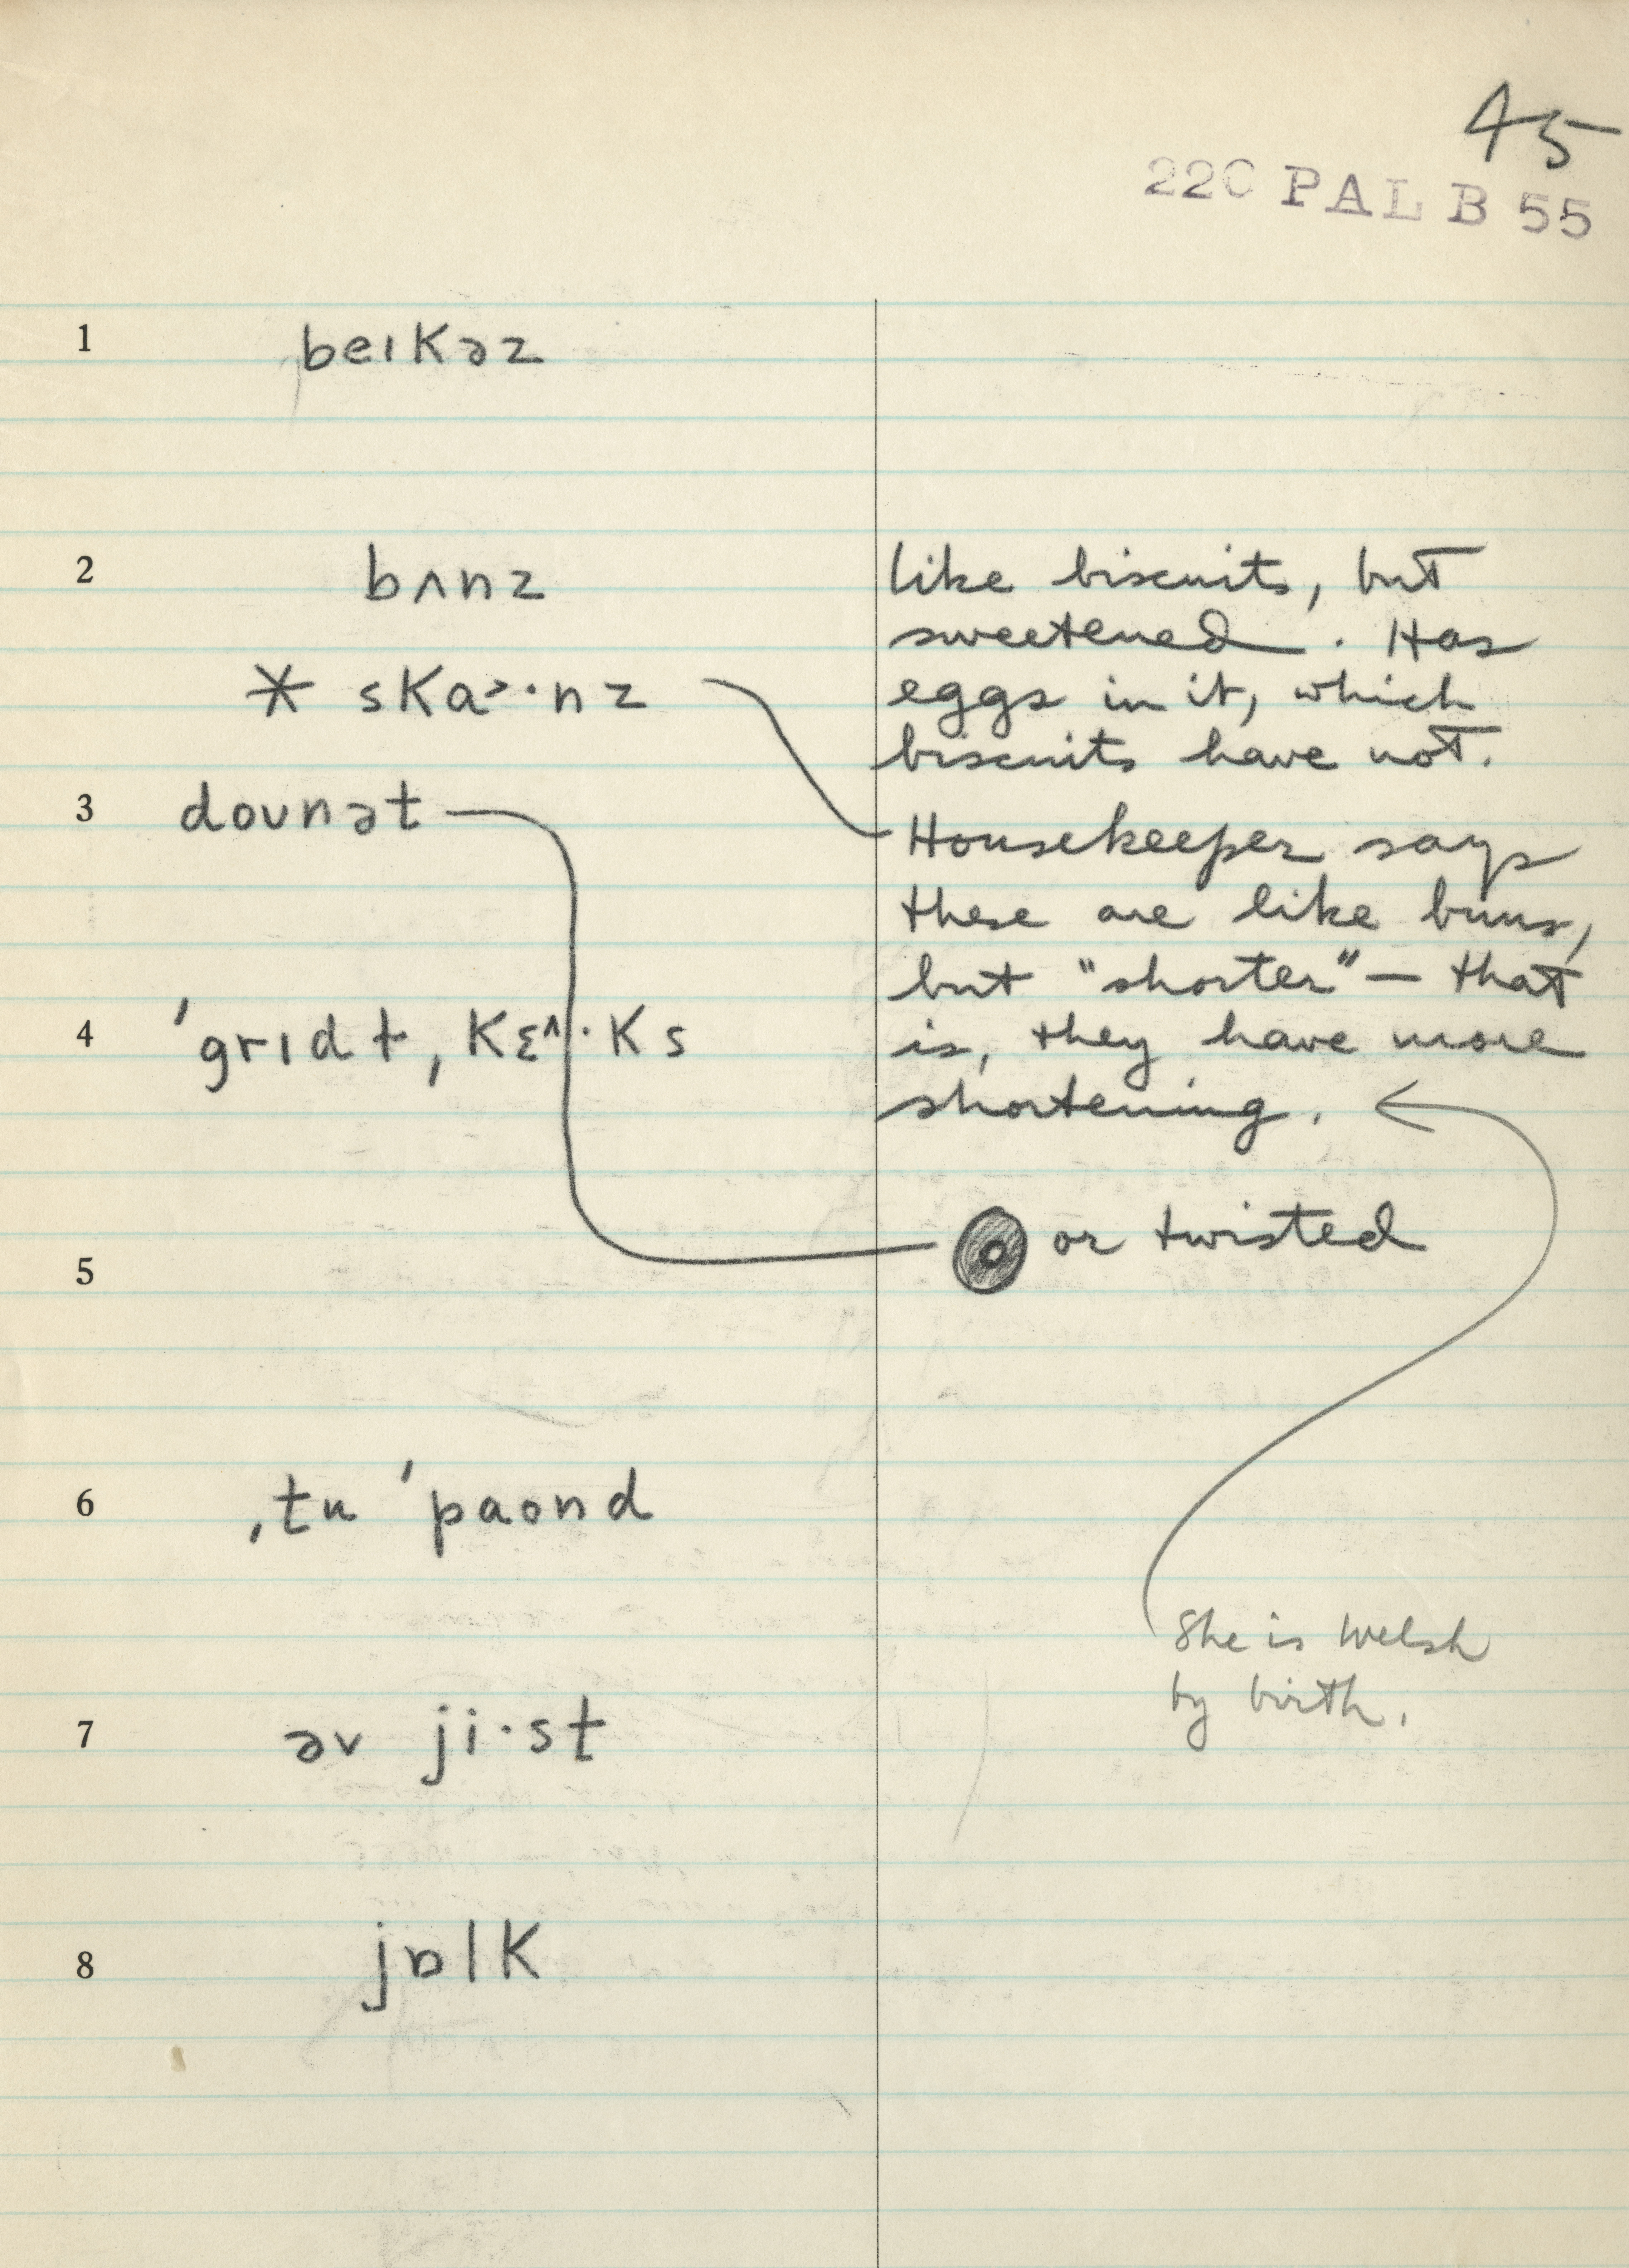 45
22C PAL B 55
1 beɪKəz
2 bʌnz
like biscuits, but
sweetened. Has
* sKa˃·nz
eggs in it, which
biscuits have not.
3 doʊnət
Housekeeper says
these are like buns,
but "shorter" — that
4 ˈgrɪdɫ, Kɛ^·Ks
is, they have more
shortening.
or twisted
5
6 ˌtu ˈpaond
She is Welsh
by birth.
7 əv ji·st
8 jɒlK